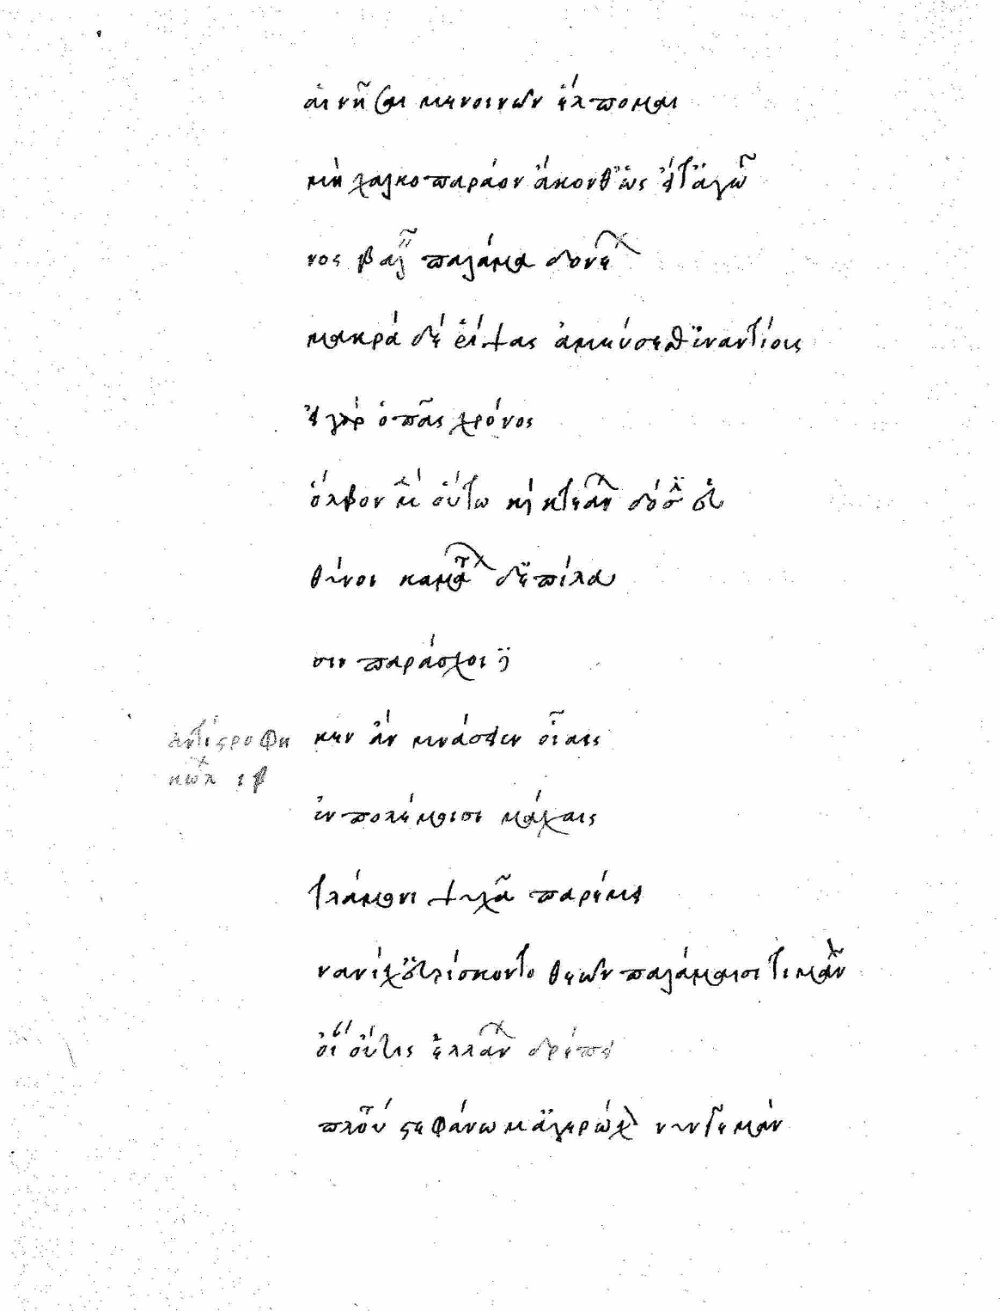 αἰνῆσαι μενοινῶν ἔλπομαι
μὴ χαλκοπάραον ἄκονθ' ὡς εἴτ' ἀγῶ
νος βαλεῖν παλάμα δονέων
μακρὰ δὲ ῥίψας ἀμεύσεσθ' ἐναντίοις
εἰ γὰρ ὁ πᾶς χρόνος
ὄλβον μὲν οὕτω καὶ κτεάνων δόσιν εὐ
θύνοι καμάτων δ' ἐπίλα
σιν παράσχοι ἦ
κεν ἂν μνάσειεν οἵαις
ἀντιστροφὴ
κώλων ιβ
ἐν πολέμοισι μάχαις
τλάμονι ψυχᾶ παρέμει
ναν ἱχ' εὑρίσκοντο θεῶν παλάμαισι τιμὰν
οἵαν οὔτις ἑλλάνων δρέπει
πλούτου στεφάνωμ' ἀγέρωχον νῦν γε μὰν